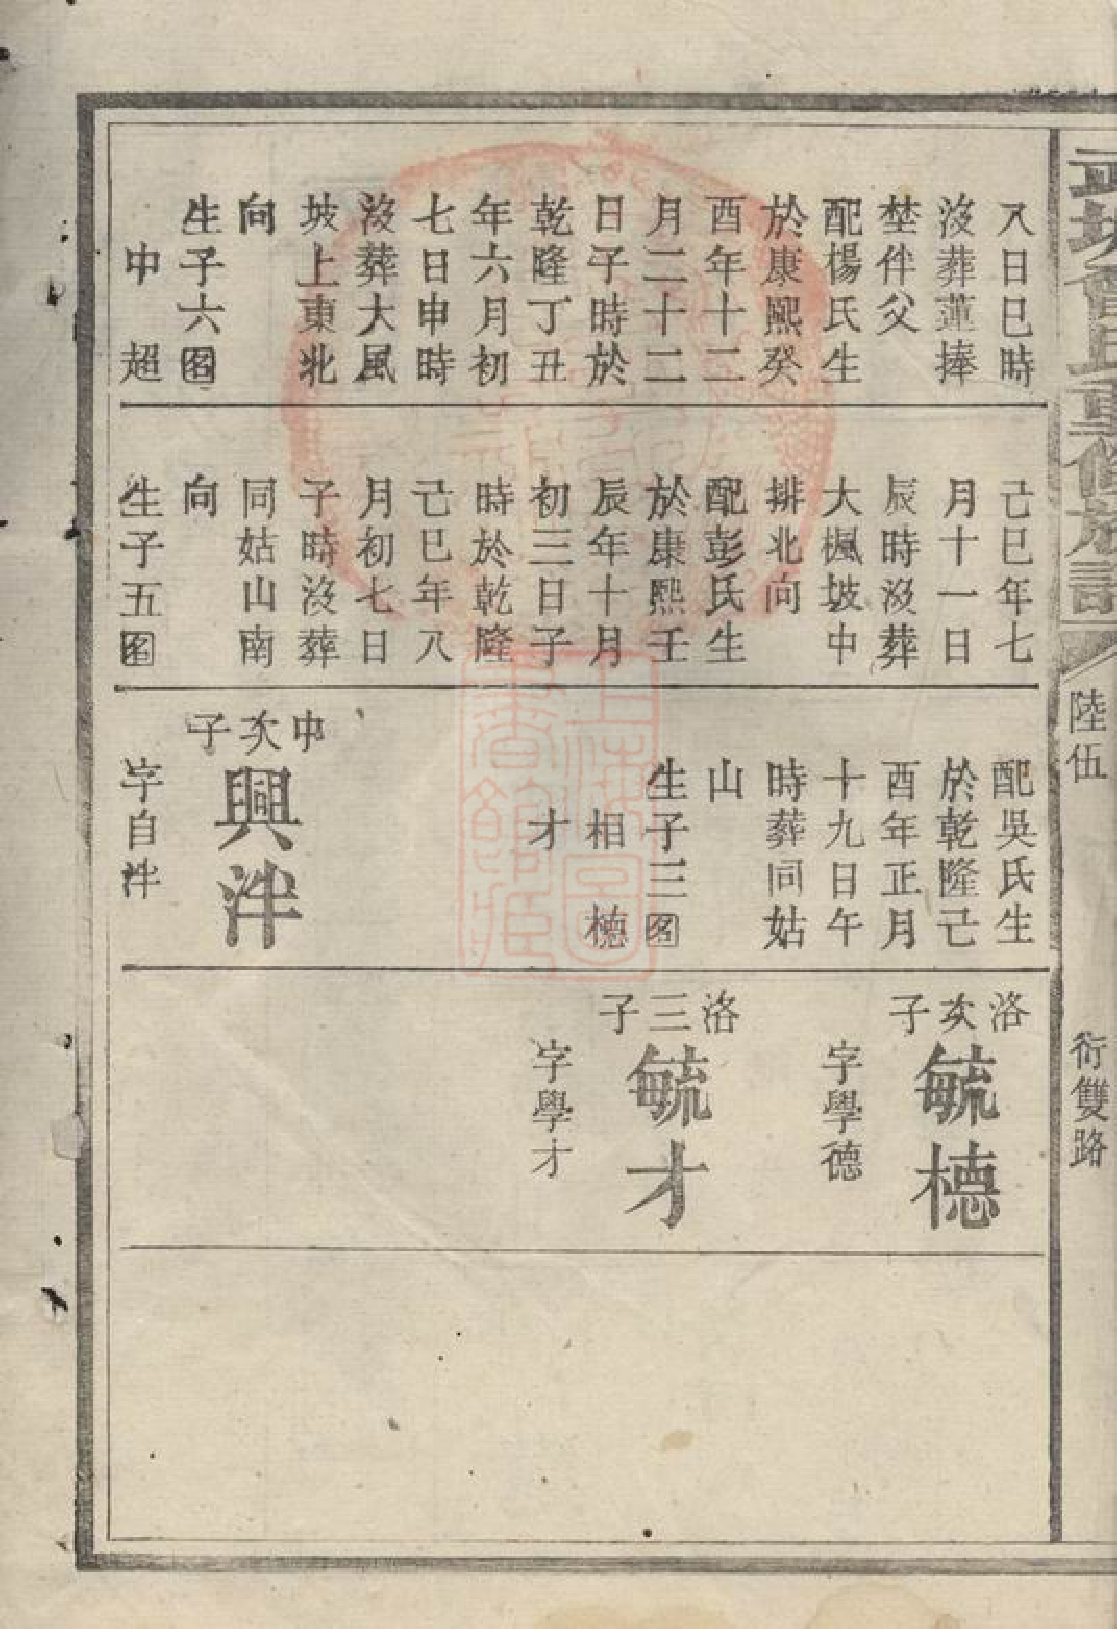 陸伍
衍雙路
入日巳時
沒葬蓮捧
埜伴父
配楊氏生
於康熙癸
酉年十二
月二十二
日子時於
乾隆丁丑
年六月初
七日申時
沒葬大風
坡上東北
向
生子六图
中超
己巳年七
月十一日
辰時沒葬
大楓坡中
排北向
配彭氏生
於康熙壬
辰年十月
初三日子
時於乾隆
己巳年八
月初七日
子時沒葬
同姑山南
向
生子五图
配吳氏生
於乾隆己
酉年正月
十九日午
時葬同姑
山
生子三图
相 德
才
中次子
興泮
字自泮
洛次子
毓德
字學德
洛三子
毓才
字學才
上海圖
書館藏